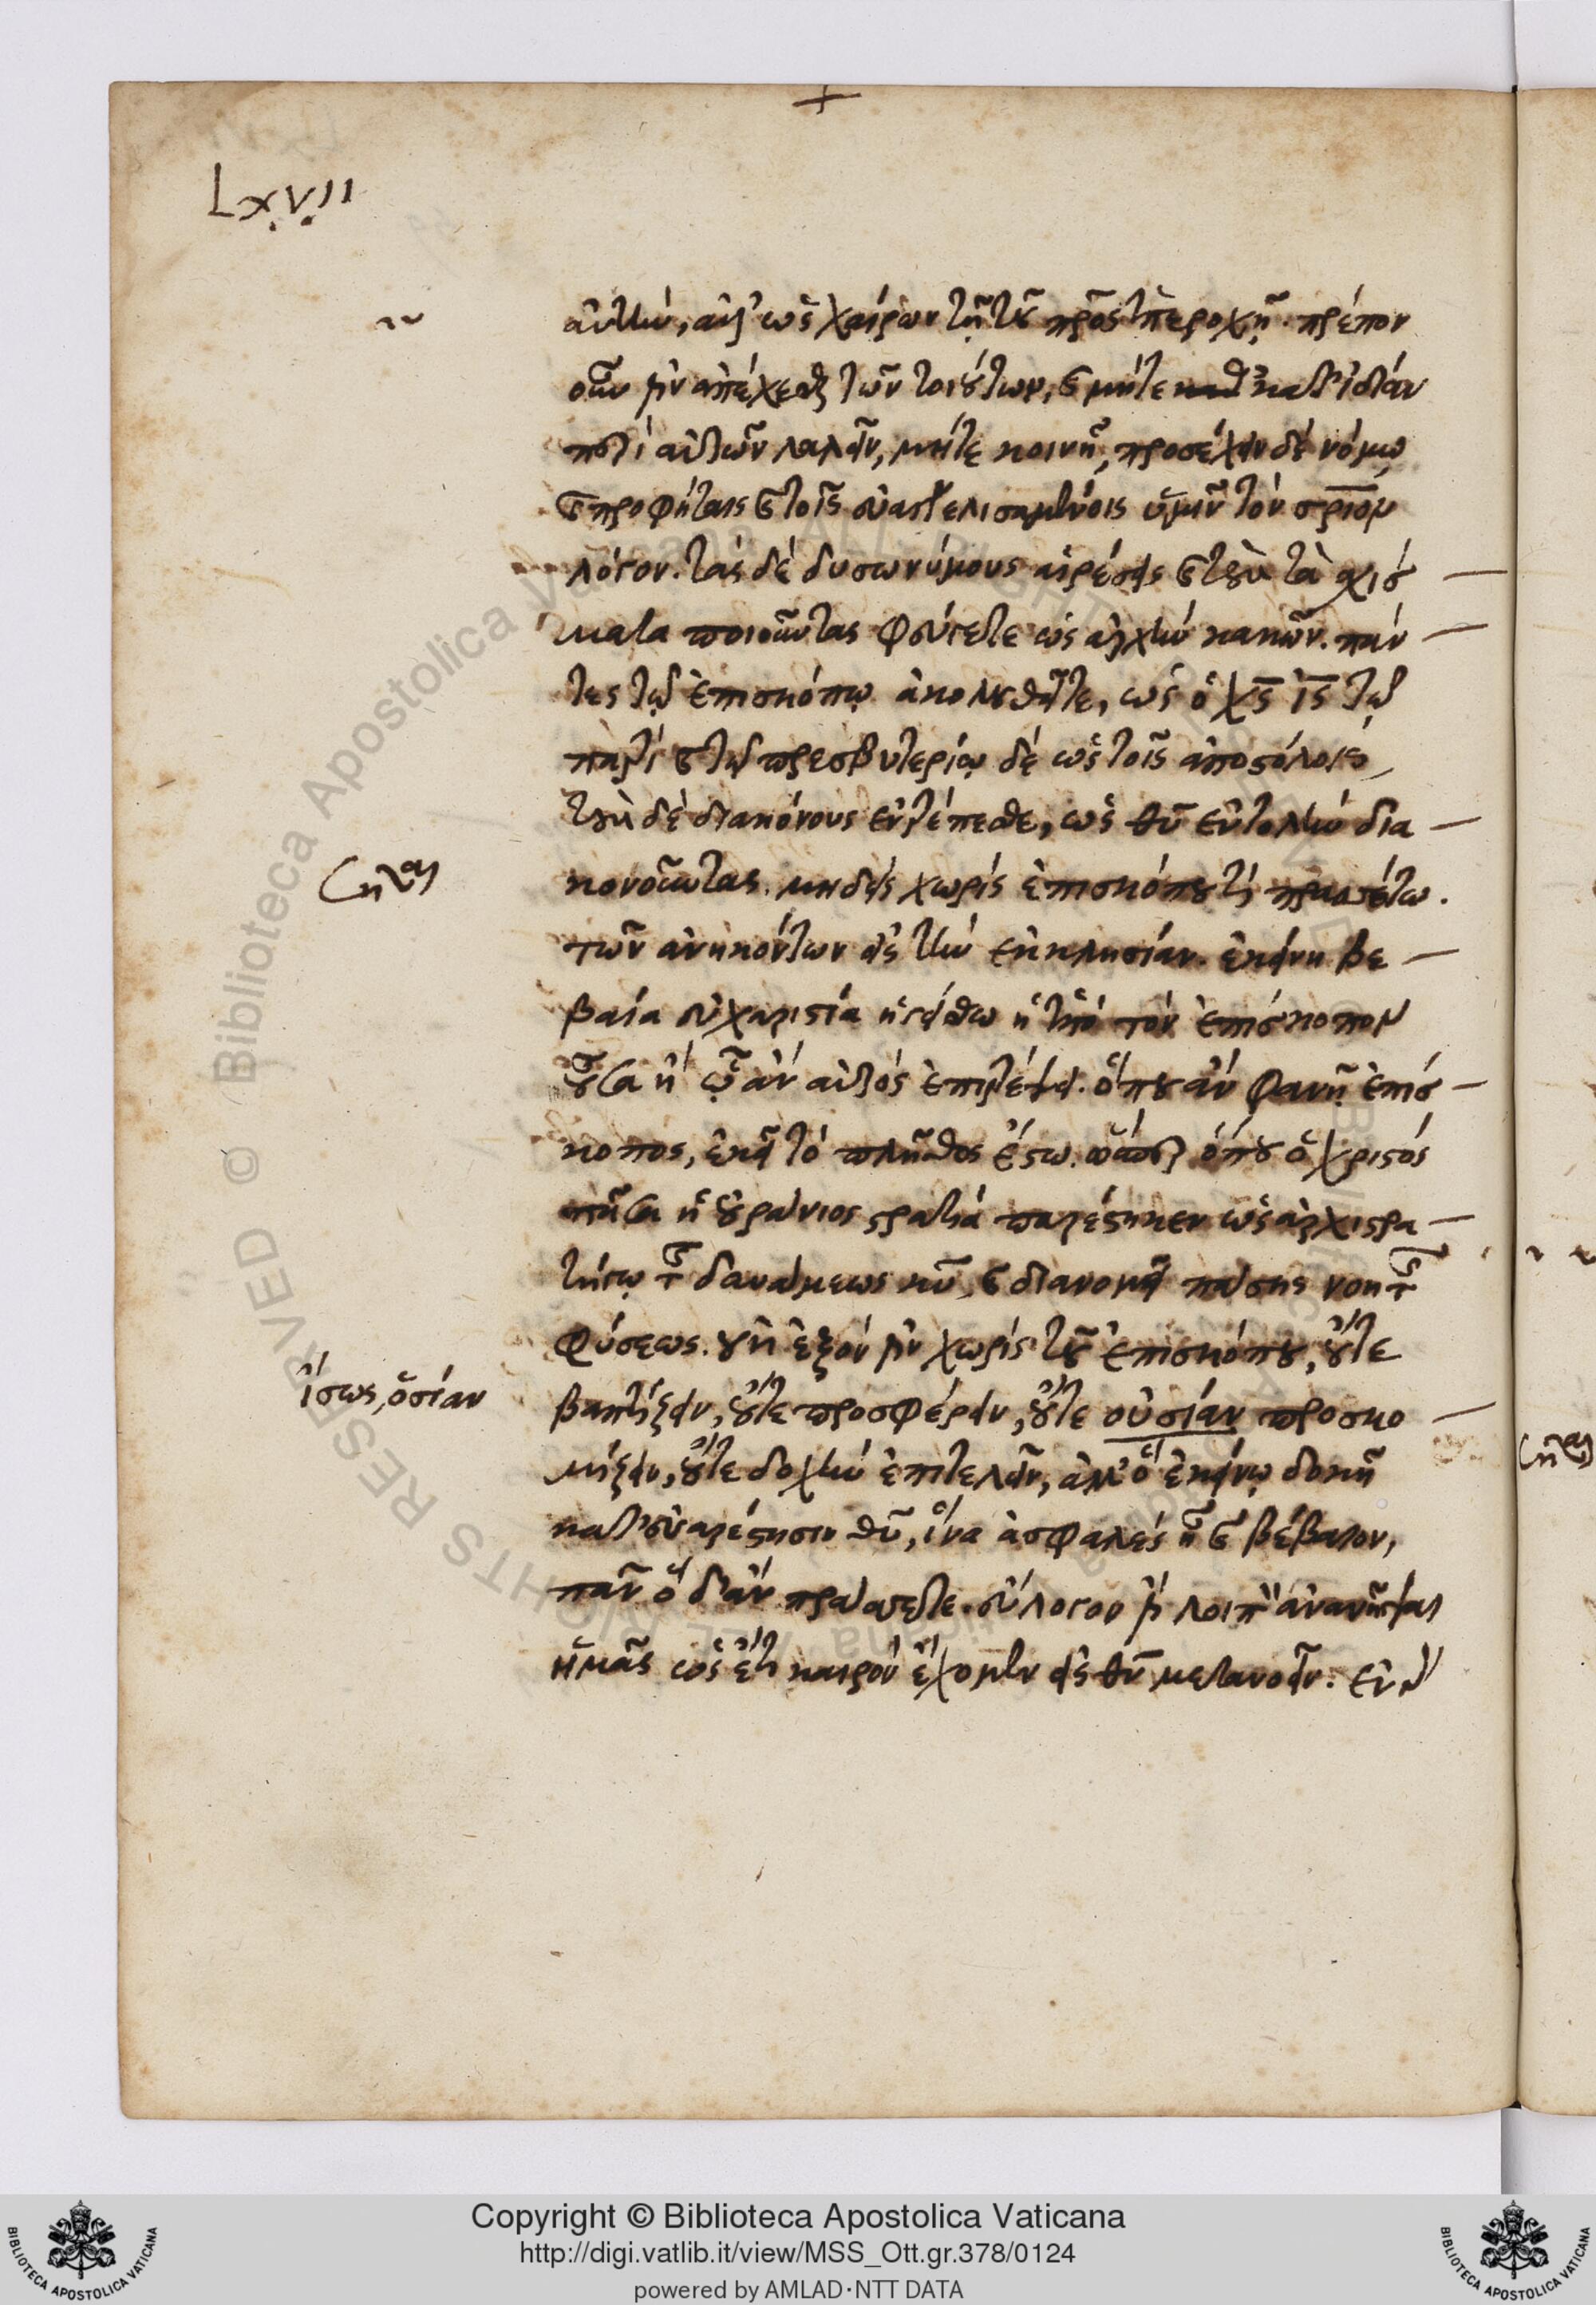 +
Lxvii
αὐτὴν, ἀλλ' ὡς χαίρων τῇ τοῦ πρς ὑπεροχῇ. πρέπον
οὖν ἐστὶν ἀπέχεσθαι τῶν τοιούτων, καὶ μήτε κατ' ἰδίαν
περὶ αὐτῶν λαλεῖν, μήτε κοινῇ, προσέχειν δὲ νόμῳ
καὶ προφήταις καὶ τοῖς εὐαγγελισαμένοις ὑμῖν τὸν σριον
λόγον. τὰς δὲ δυσωνύμους αἱρέσεις καὶ τοὺς τὰ χισ
ματα ποιοῦντας φεύγετε ὡς ἀρχὴν κακῶν. πάν
τες τῷ ἐπισκόπῳ ἀκολουθεῖτε, ὡς ὁ χς ις τῷ
πατρὶ καὶ τῷ πρεσβυτερίῳ δὲ ὡς τοῖς ἀποστόλοις
τοὺς δὲ διακόνους ἐντρέπεσθε, ὡς θυ ἐντολὴν δια
κονοῦντας. μηδεὶς χωρὶς ἐπισκόπου τὶ πρασσέτω.
τῶν ἀνηκόντων εἰς τὴν ἐκκλησίαν. ἐκείνη βε
βαία εὐχαριστία ἡγείσθω ἡ ὑπὸ τὸν ἐπίσκοπον
οὖσα ἢ ᾧ ἂν αὐτὸς ἐπιτρέψει. ὅπου ἂν φανῇ ἐπίσ
κοπος, ἐκεῖ τὸ πλῆθος ἔστω. ὥσπερ ὅπου ὁ χριστὸς
πᾶσα ἡ οὐράνιος στρατιὰ παρέστηκεν ὡς ἀρχιστρα
τήγῳ τῆς δυνάμεως κυ, καὶ διανομεῖ πάσης νοητῆς
φύσεως. οὐκ ἐξόν ἐστὶν χωρὶς τοῦ ἐπισκόπου, οὔτε
βαπτίζειν, οὔτε προσφέρειν, οὔτε οὐσίαν προσκο
μίζειν, οὔτε δοχὴν ἐπιτελεῖν, ἀλλ' ὃ ἐκείνῳ δοκῇ
κατ' εὐαρέστησιν θυ, ἵνα ἀσφαλὲς ᾖ καὶ βέβαιον,
πᾶν ὃ δι' ἂν πράσσετε. εὔλογον ἐστὶ λοιπὸν ἀνανῆψαι
ἡμᾶς ὡς ἔτι καιρὸν ἔχομεν εἰς θν μετανοεῖν. ἐν
ἴσως, ὁσίαν
Copyright © Biblioteca Apostolica Vaticana
http://digi.vatlib.it/view/MSS_Ott.gr.378/0124
powered by AMLAD·NTT DATA
BIBLIOTECA APOSTOLICA VATICANA
BIBLIOTECA APOSTOLICA VATICANA